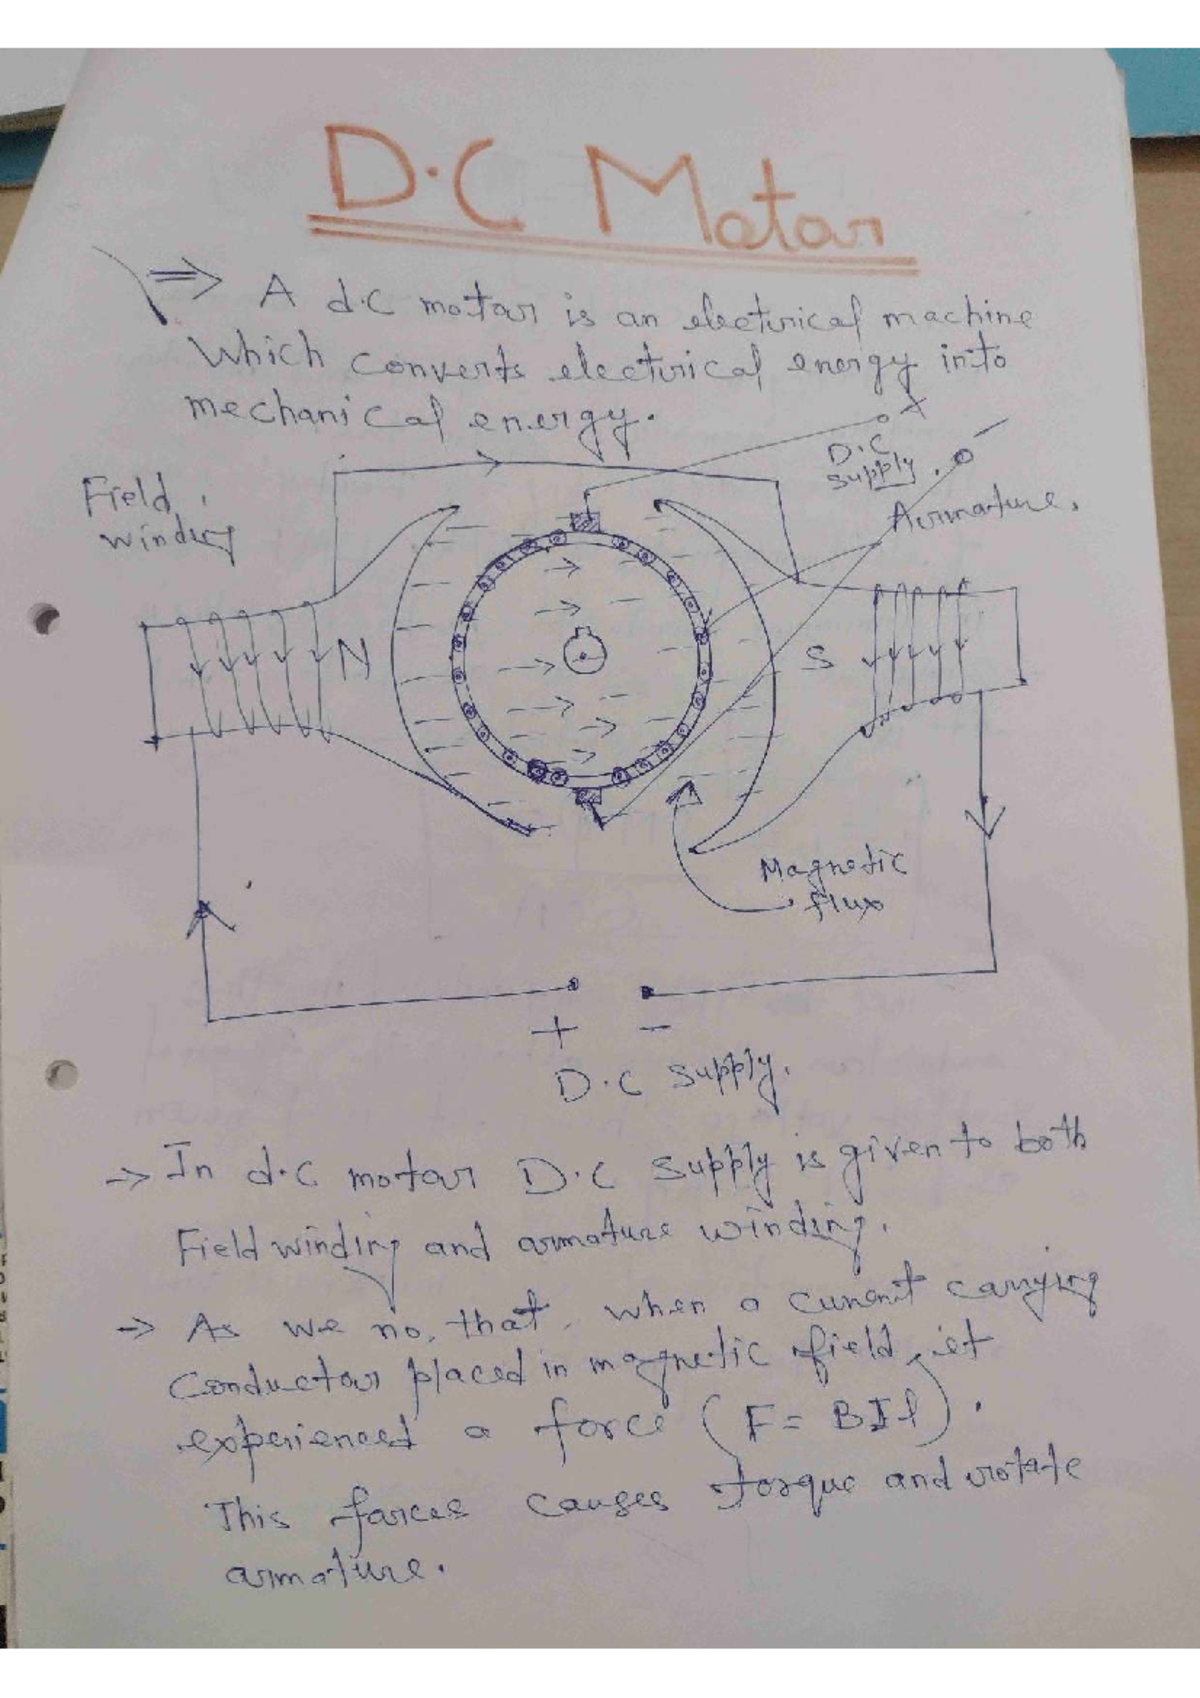 D.C Motor
⇒ A d.c motor is an electrical machine
Which converts electrical energy into
mechanical energy.
+
D.C
supply.
−
Field
winding
Armature.
N
S
Magnetic
flux
+ −
D.C supply.
→ In d.c motor D.C supply is given to both
Field winding and armature winding.
→ As we no, that, when a current carrying
Conductor placed in magnetic field, it
experienced a force (F = BIl).
This forces causes torque and rotate
armature.